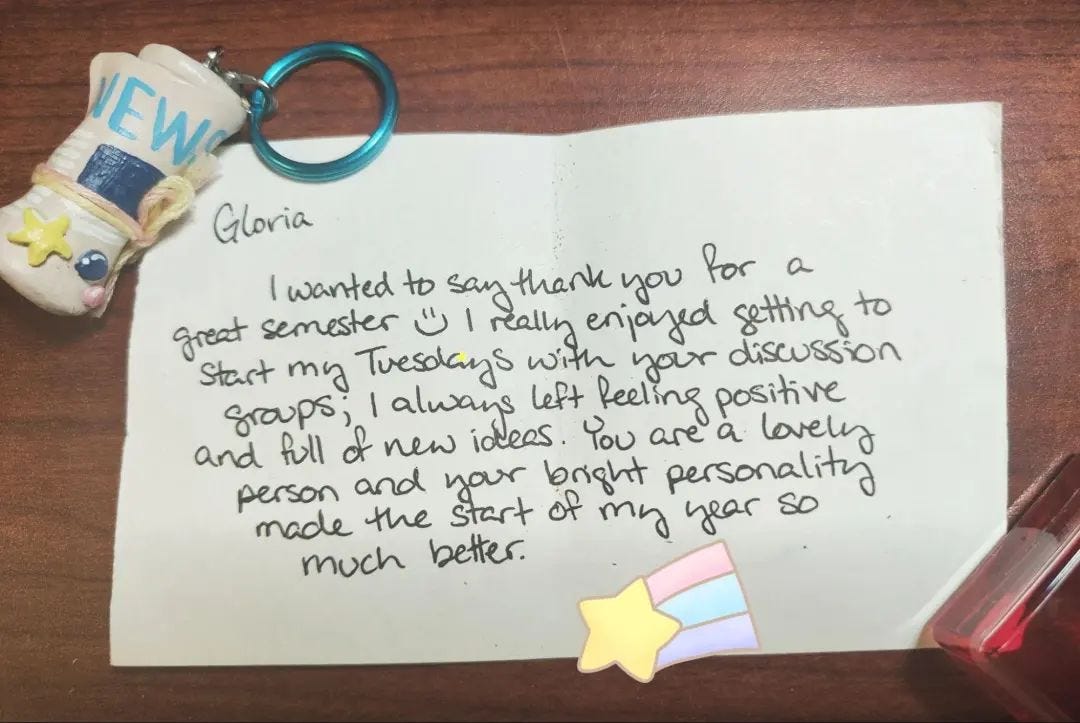 NEWS
Gloria
I wanted to say thank you for a
great semester :) I really enjoyed getting to
start my Tuesdays with your discussion
groups; I always left feeling positive
and full of new ideas. You are a lovely
person and your bright personality
made the start of my year so
much better.